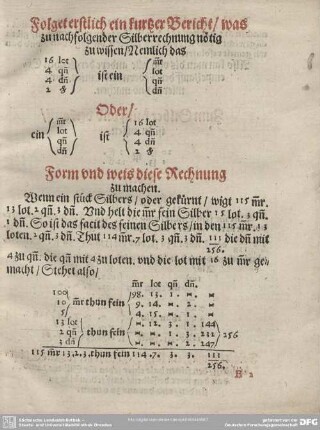 Folget erstlich ein kurtzer Bericht/ was
zu nachfolgender Silberrechnung nötig
zu wissen/ Nemlich das
16 lot
4 qñ
4 dñ
2 ₰
ist ein
mr̃
lot
qñ
dñ
Oder/
ein
mr̃
lot
qñ
dñ
ist
16 lot
4 qñ
4 dñ
2 ₰
Form vnd weis diese Rechnung
zu machen.
Wenn ein stück Silbers/ oder gekürnt/ wigt 115 mr̃.
13 lot. 2 qñ. 3 dñ. Vnd helt die mr̃ fein Silber 15 lot. 3 qñ.
1 dñ. So ist das facit des feinen Silbers/ in den 115 mr̃. 13
loten. 2 qñ. 3 dñ. Thut 114 mr̃. 7 lot. 3 qñ. 3 dñ. 111 die dñ mit
256.
4 zu qñ. die qñ mit 4 zu loten. vnd die lot mit 16 zu mr̃ ge-
macht/ Stehet also/
mr̃ lot qñ dñ.
100 98. 13. 1. ″. ″
10 mr̃ thun fein 9. 14. ″. ″. ″
5 4. 15. ″. 1. ″
13 lot ″. 12. 3. 1. 144
2 qñ thun fein ″. ″. 1. 3. 232 256
3 dñ ″. ″. ″. 2. 247
115 mr̃ 13. 2. 3. thun fein 114. 7. 3. 3. 111
256.
B 2